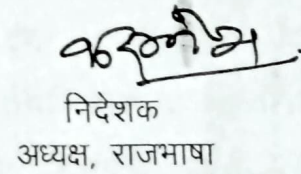 निदेशक
अध्यक्ष, राजभाषा